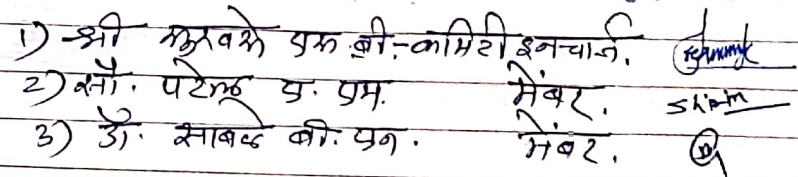 1) श्री एम बी. कमिटी इनचार्ज.
2) सौ. पटेल ए. एम. मेंबर.
3) डॉ. साबळे बी. एन. मेंबर.